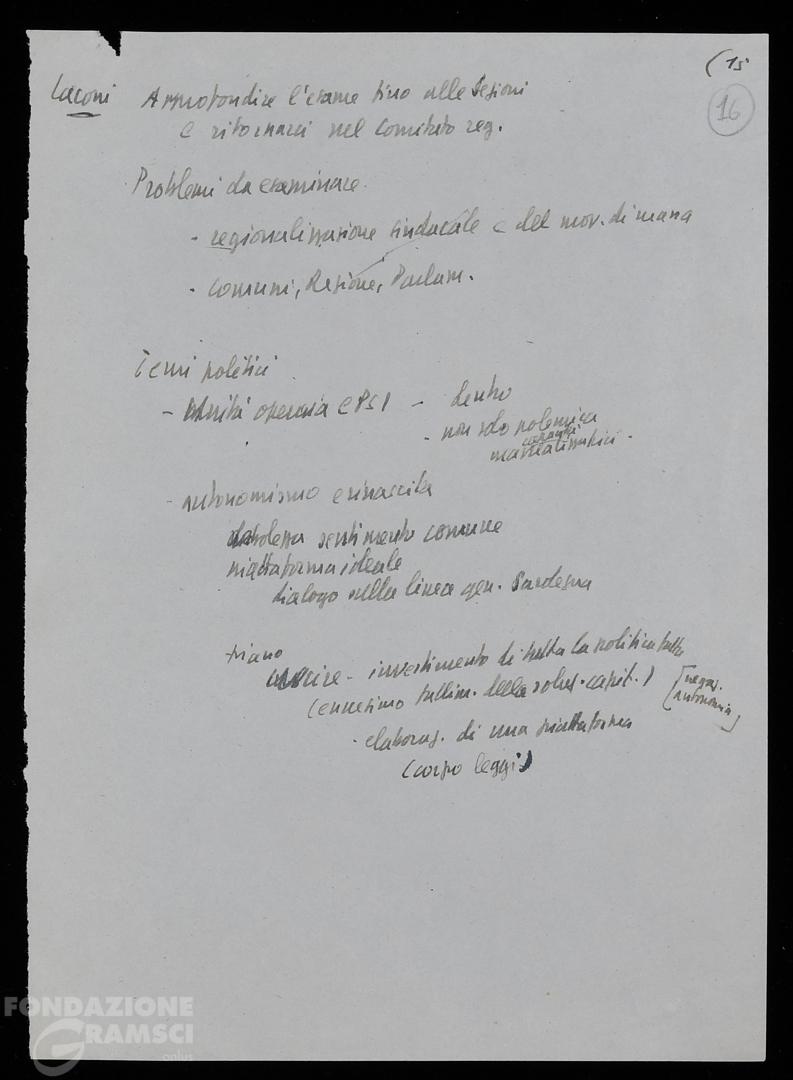 (15
16
Laconi Approfondire l'esame fino alle Sezioni
e ritornarci nel Comitato reg.
Problemi da esaminare.
- regionalizzazione sindacale e del mov. di massa
- Comuni, Regione, Parlam.
Temi politici
- Unità operaia e PSI - dentro
- non solo polemica
- autonomismo e rinascita
debolezza sentimento comune
piattaforma ideale
dialogo sulla linea gen. Sardegna
piano
- investimento di tutta la politica
(ennesimo fallim. della soluz. capit.)
[negaz.
autonomia]
- elaboraz. di una piattaforma
(corpo leggi)
FONDAZIONE
GRAMSCI
onlus